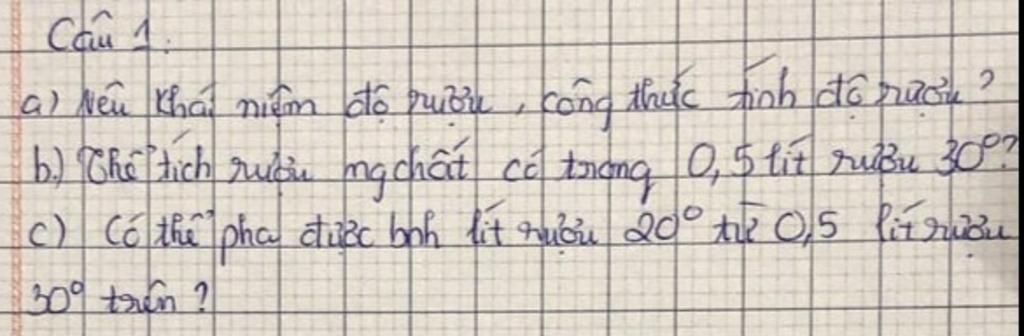 Câu 1:
a) Nêu khái niệm độ rượu, công thức tính độ rượu?
b.) Thể tích rượu ngchất có trong 0,5 lít rượu 30º?
c) Có thể pha được bnh lít rượu 20º từ 0,5 lít rượu
30º trên?